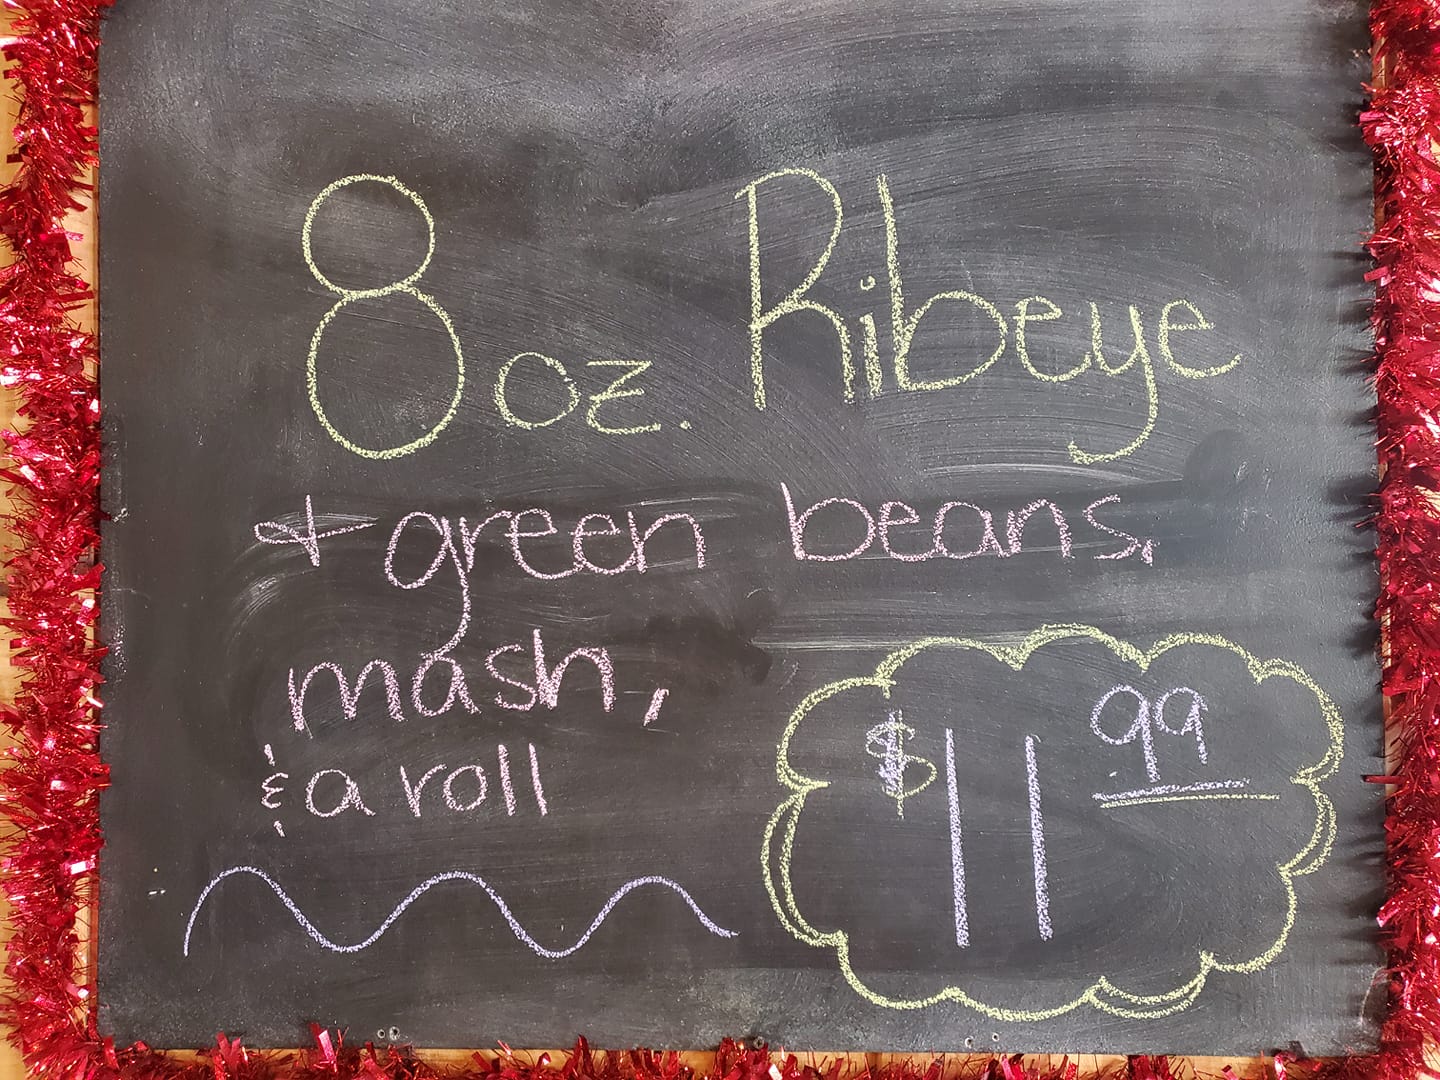 8 oz. Ribeye
+ green beans,
mash,
& a roll
$11.99